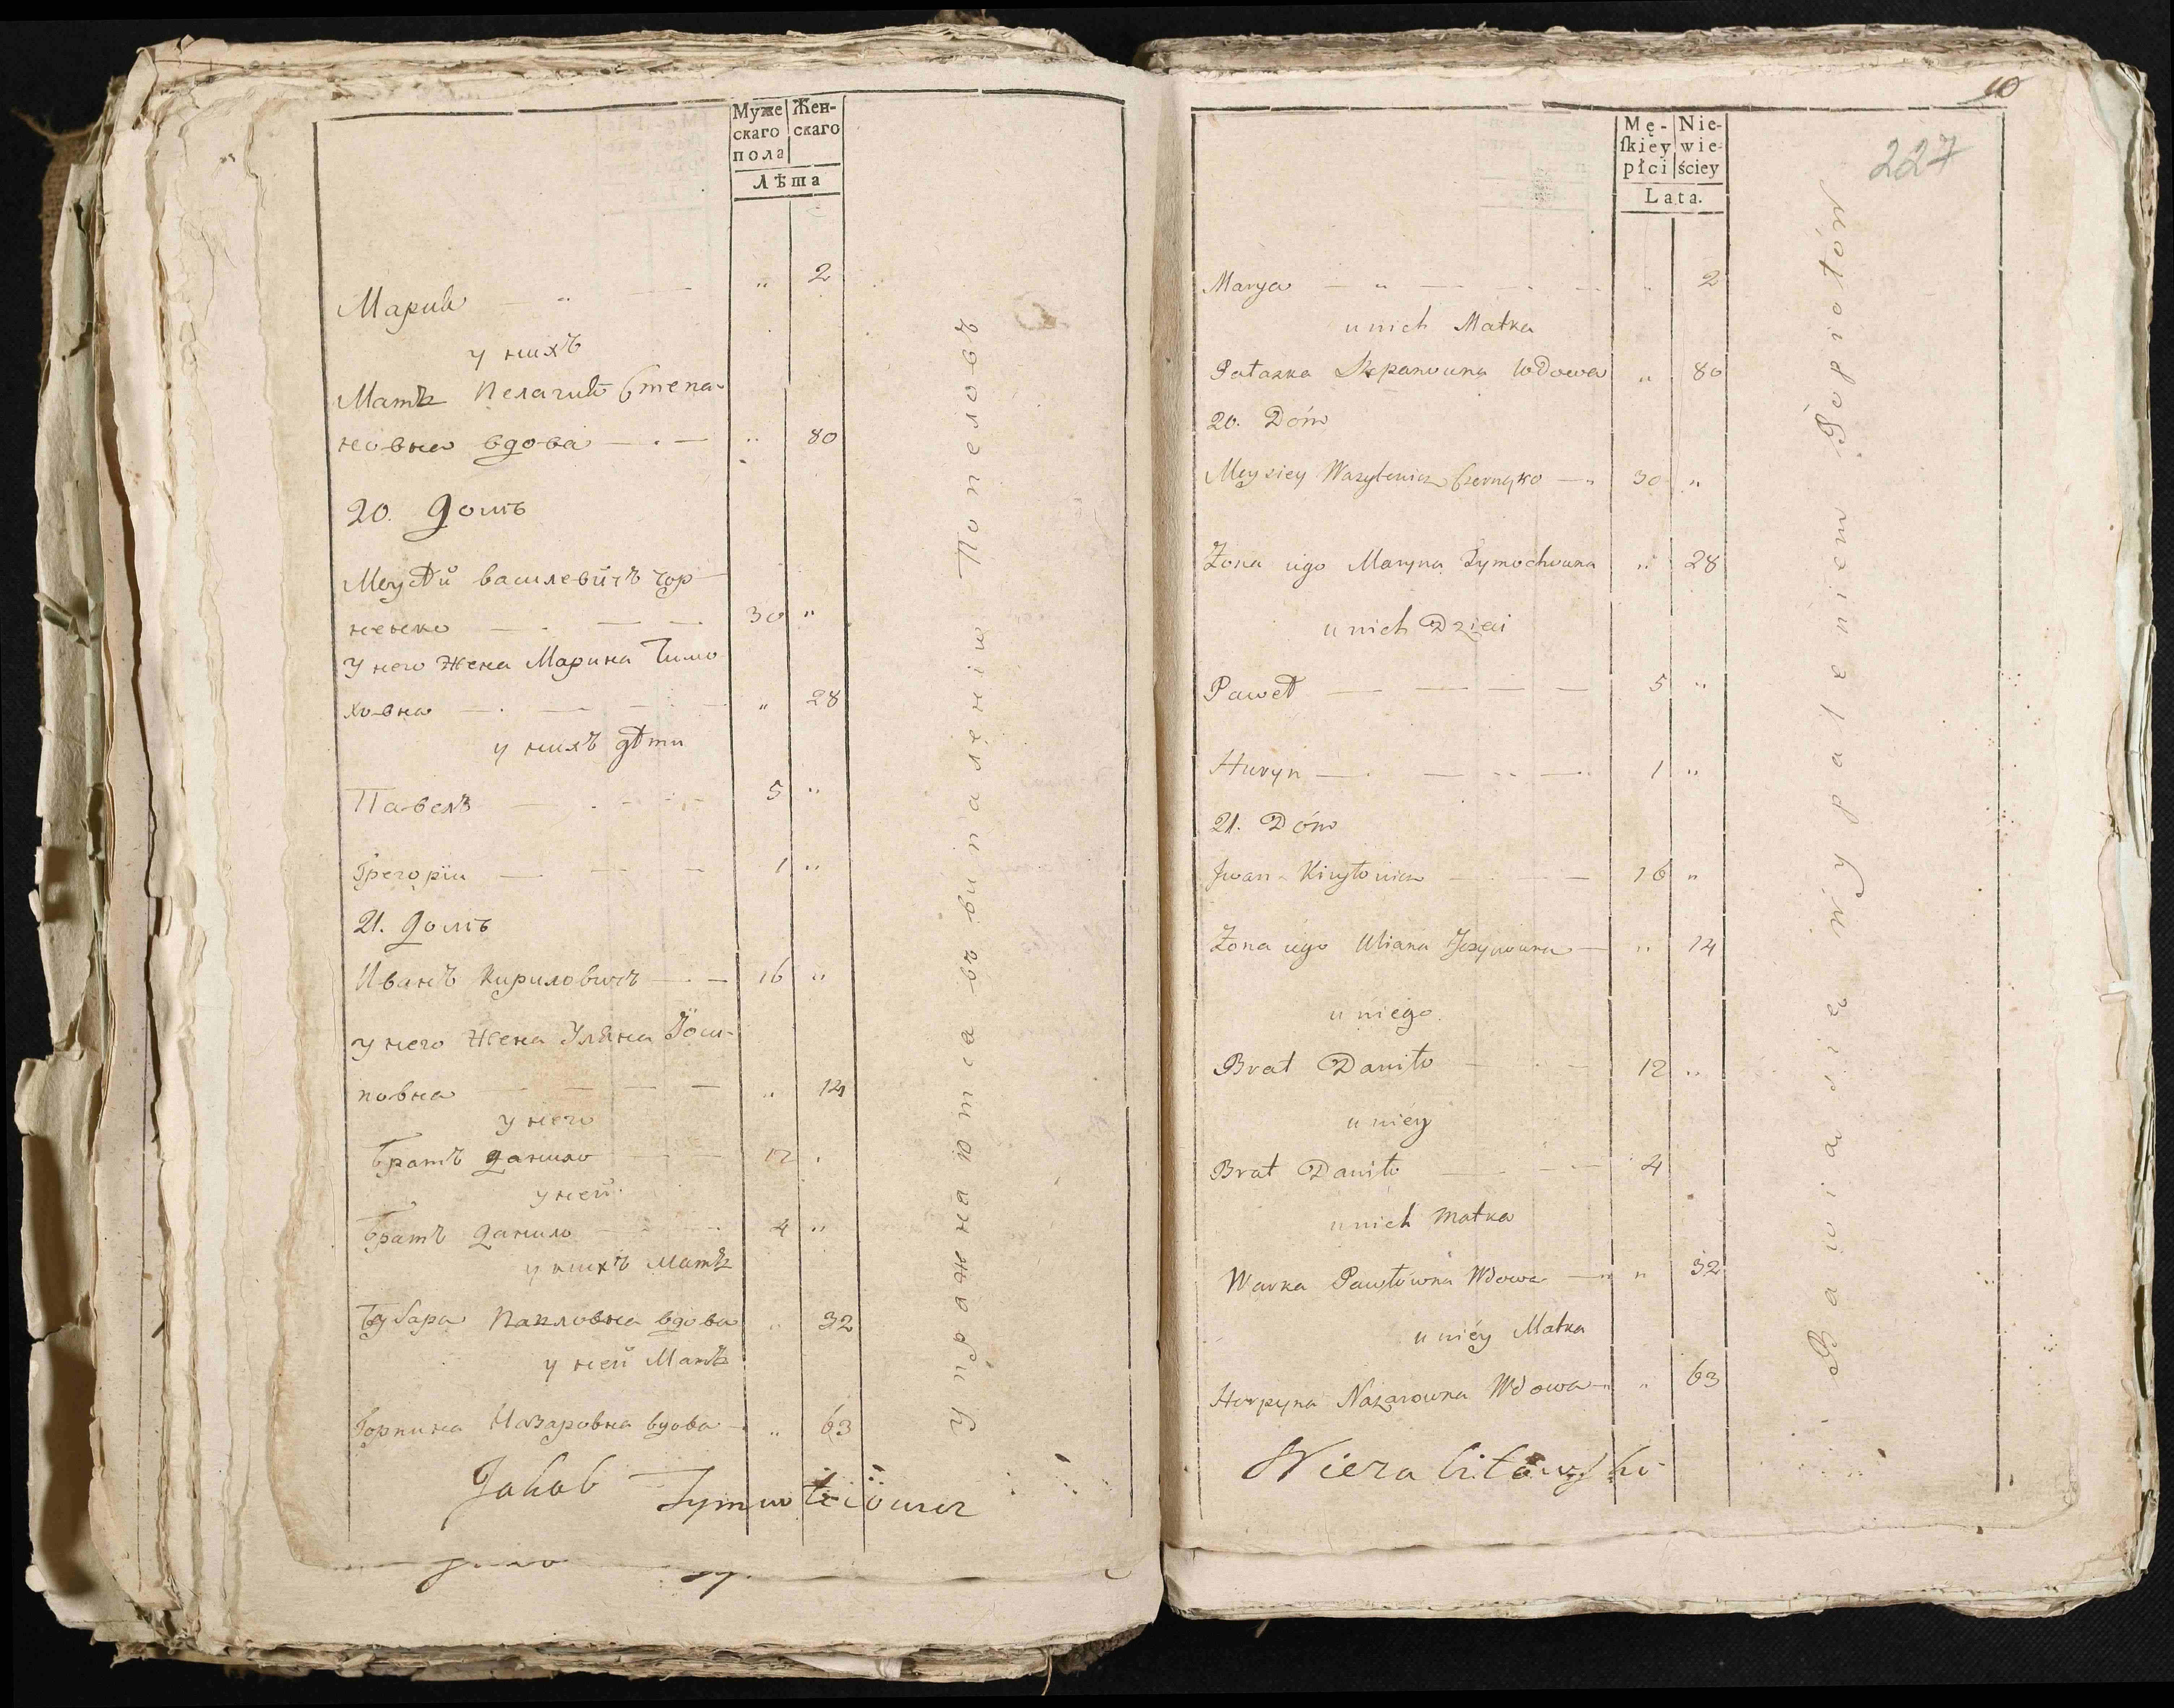 Муже
скаго
пола
Жен-
скаго
Лѣта
Мария — „ — „ 2
у нихъ
Мать Пелагия Степа-
новна вдова — . — „ 80
20. Домъ
Моусѣй василевичъ чор-
ненко — . — — 30 „
у него жена Марина Тимо
ховна — . — — „ 28
у нихъ дѣти
Павелъ — 5 „
Грегорiи — — — 1 „
21. домъ
Иванъ Кириловичъ — . — 16 „
у него жена Уляна
повна — — — — „ 14
у него
братъ данило — — 12 .
у ней
братъ данило — 4 „
у нихъ мать
Павловна вдова „ 32
у ней мать
Горпина Назаровна вдова — „ 63
Упражнаются въ випаленiи Попеловъ
Jakob Tymo
10
227
Mę-
ſkiey
płci
Nie-
wie-
ściey
Lata.
Marya — „ — — „ 2
u nich Matka
Pałazka Szepanouna Wdowa „ 80
20. Dóm
Moysiey Wazylewicz — „ 30 „
Żona iego Maryna Tymochouna „ 28
u nich Dzieci
Paweł — — — — 5 „
Huryn — . — — . 1 „
21. Dóm
Jwan Kiryłowicz — — 16 „
Żona iego Uliana — „ 14
u niego
Brat Daniło — — 12 „
u niey
Brat Daniło — — 4
u nich Matka
Warka Pawłowna Wdowa — „ 32
u niey Matka
Horpyna Nazarowna Wdowa — „ 63
Bawia sie Wypaleniem Popiołów